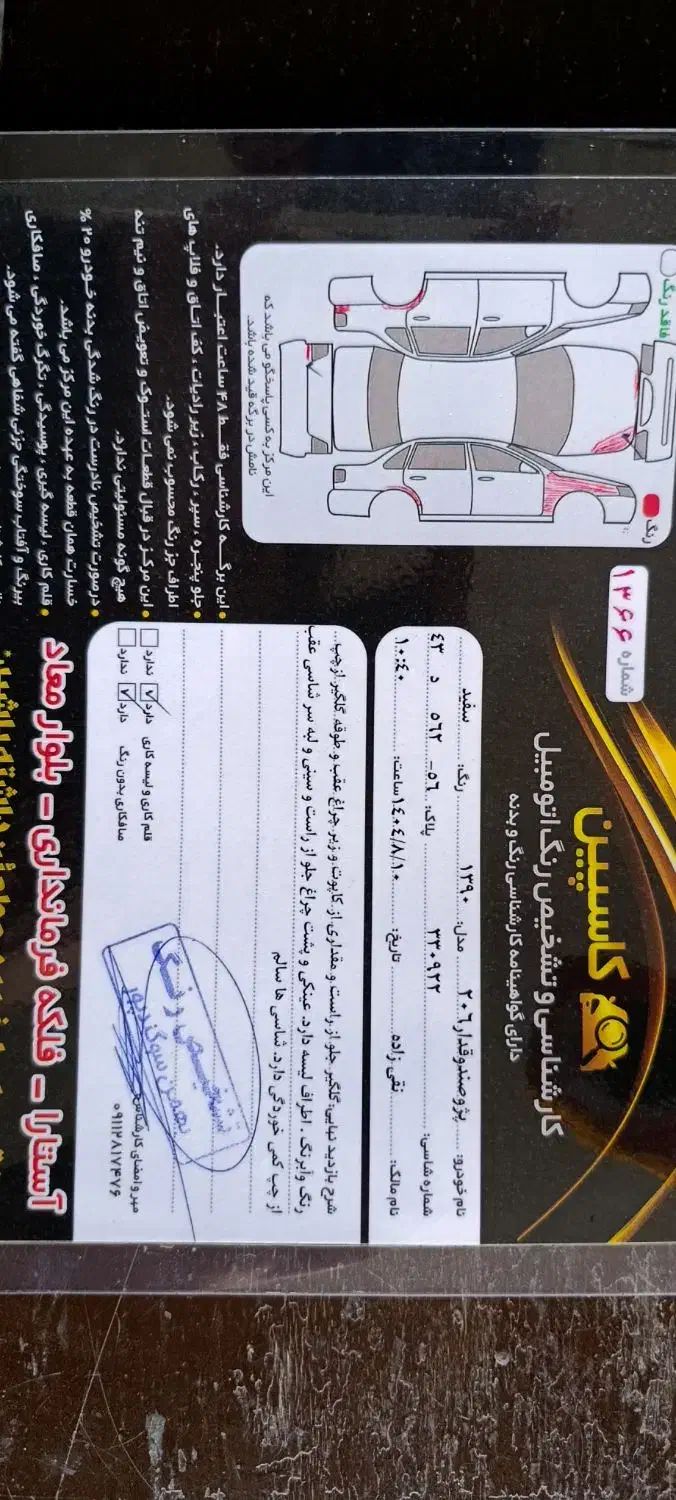 کاسپین
کارشناسی و تشخیص رنگ اتومبیل
دارای گواهینامه کارشناسی رنگ و بدنه
شماره ۱۳۶۶
فاقد رنگ
رنگ
این مرکز به کسی پاسخگو می باشد که
نامش در برگه قید شده باشد.
نام خودرو: پژو صندوقدار ۲۰۶ مدل: ۱۳۹۰ رنگ: سفید
شماره شاسی: ۳۳۰۹۲۲ پلاک: ۵۶ - ۵۶۲ د ۴۳
نام مالک: نقی زاده تاریخ: ۱۴۰۴/۸/۱۰ ساعت: ۱۰:۴۰
شرح بازدید نهایی: گلگیر جلو از راست و مقداری از کاپوت و زیر چراغ عقب و طوقه گلگیر از چپ
رنگ و آبرنگ. اطراف لیسه دارد. عینکی و پشت چراغ جلو از راست و سینی و لبه سر شاسی عقب
از چپ کمی خوردگی دارد. شاسی ها سالم
قلم کاری و لیسه کاری دارد ✓ ندارد
صافکاری بدون رنگ دارد ✓ ندارد
مهر و امضای کارشناس
۰۹۱۱۲۸۱۷۴۷۶
تشخیص رنگ
بهمن سوگندپور
این برگه کارشناسی فقط ۴۸ ساعت اعتبار دارد.
جلو پنجره، سپر، رکاب، زیر رادیات، کف اتاق و قلاب های
اطراف جز رنگ محسوب نمی شود.
این مرکز در قبال قطعات استوک و تعویض اتاق و نیم تنه
هیچ گونه مسئولیتی ندارد.
درصورت تشخیص نادرست در رنگ شدگی بدنه خودرو ۲۰ %
خسارت همان قطعه به عهده این مرکز می باشد.
قلم کاری، لیسه گیری، پوسیدگی، تگرگ خوردگی، صافکاری
بیرنگ و آفتاب سوختگی جزئی شفاهی گفته می شود.
آستارا - فلکه فرمانداری - بلوار معاد